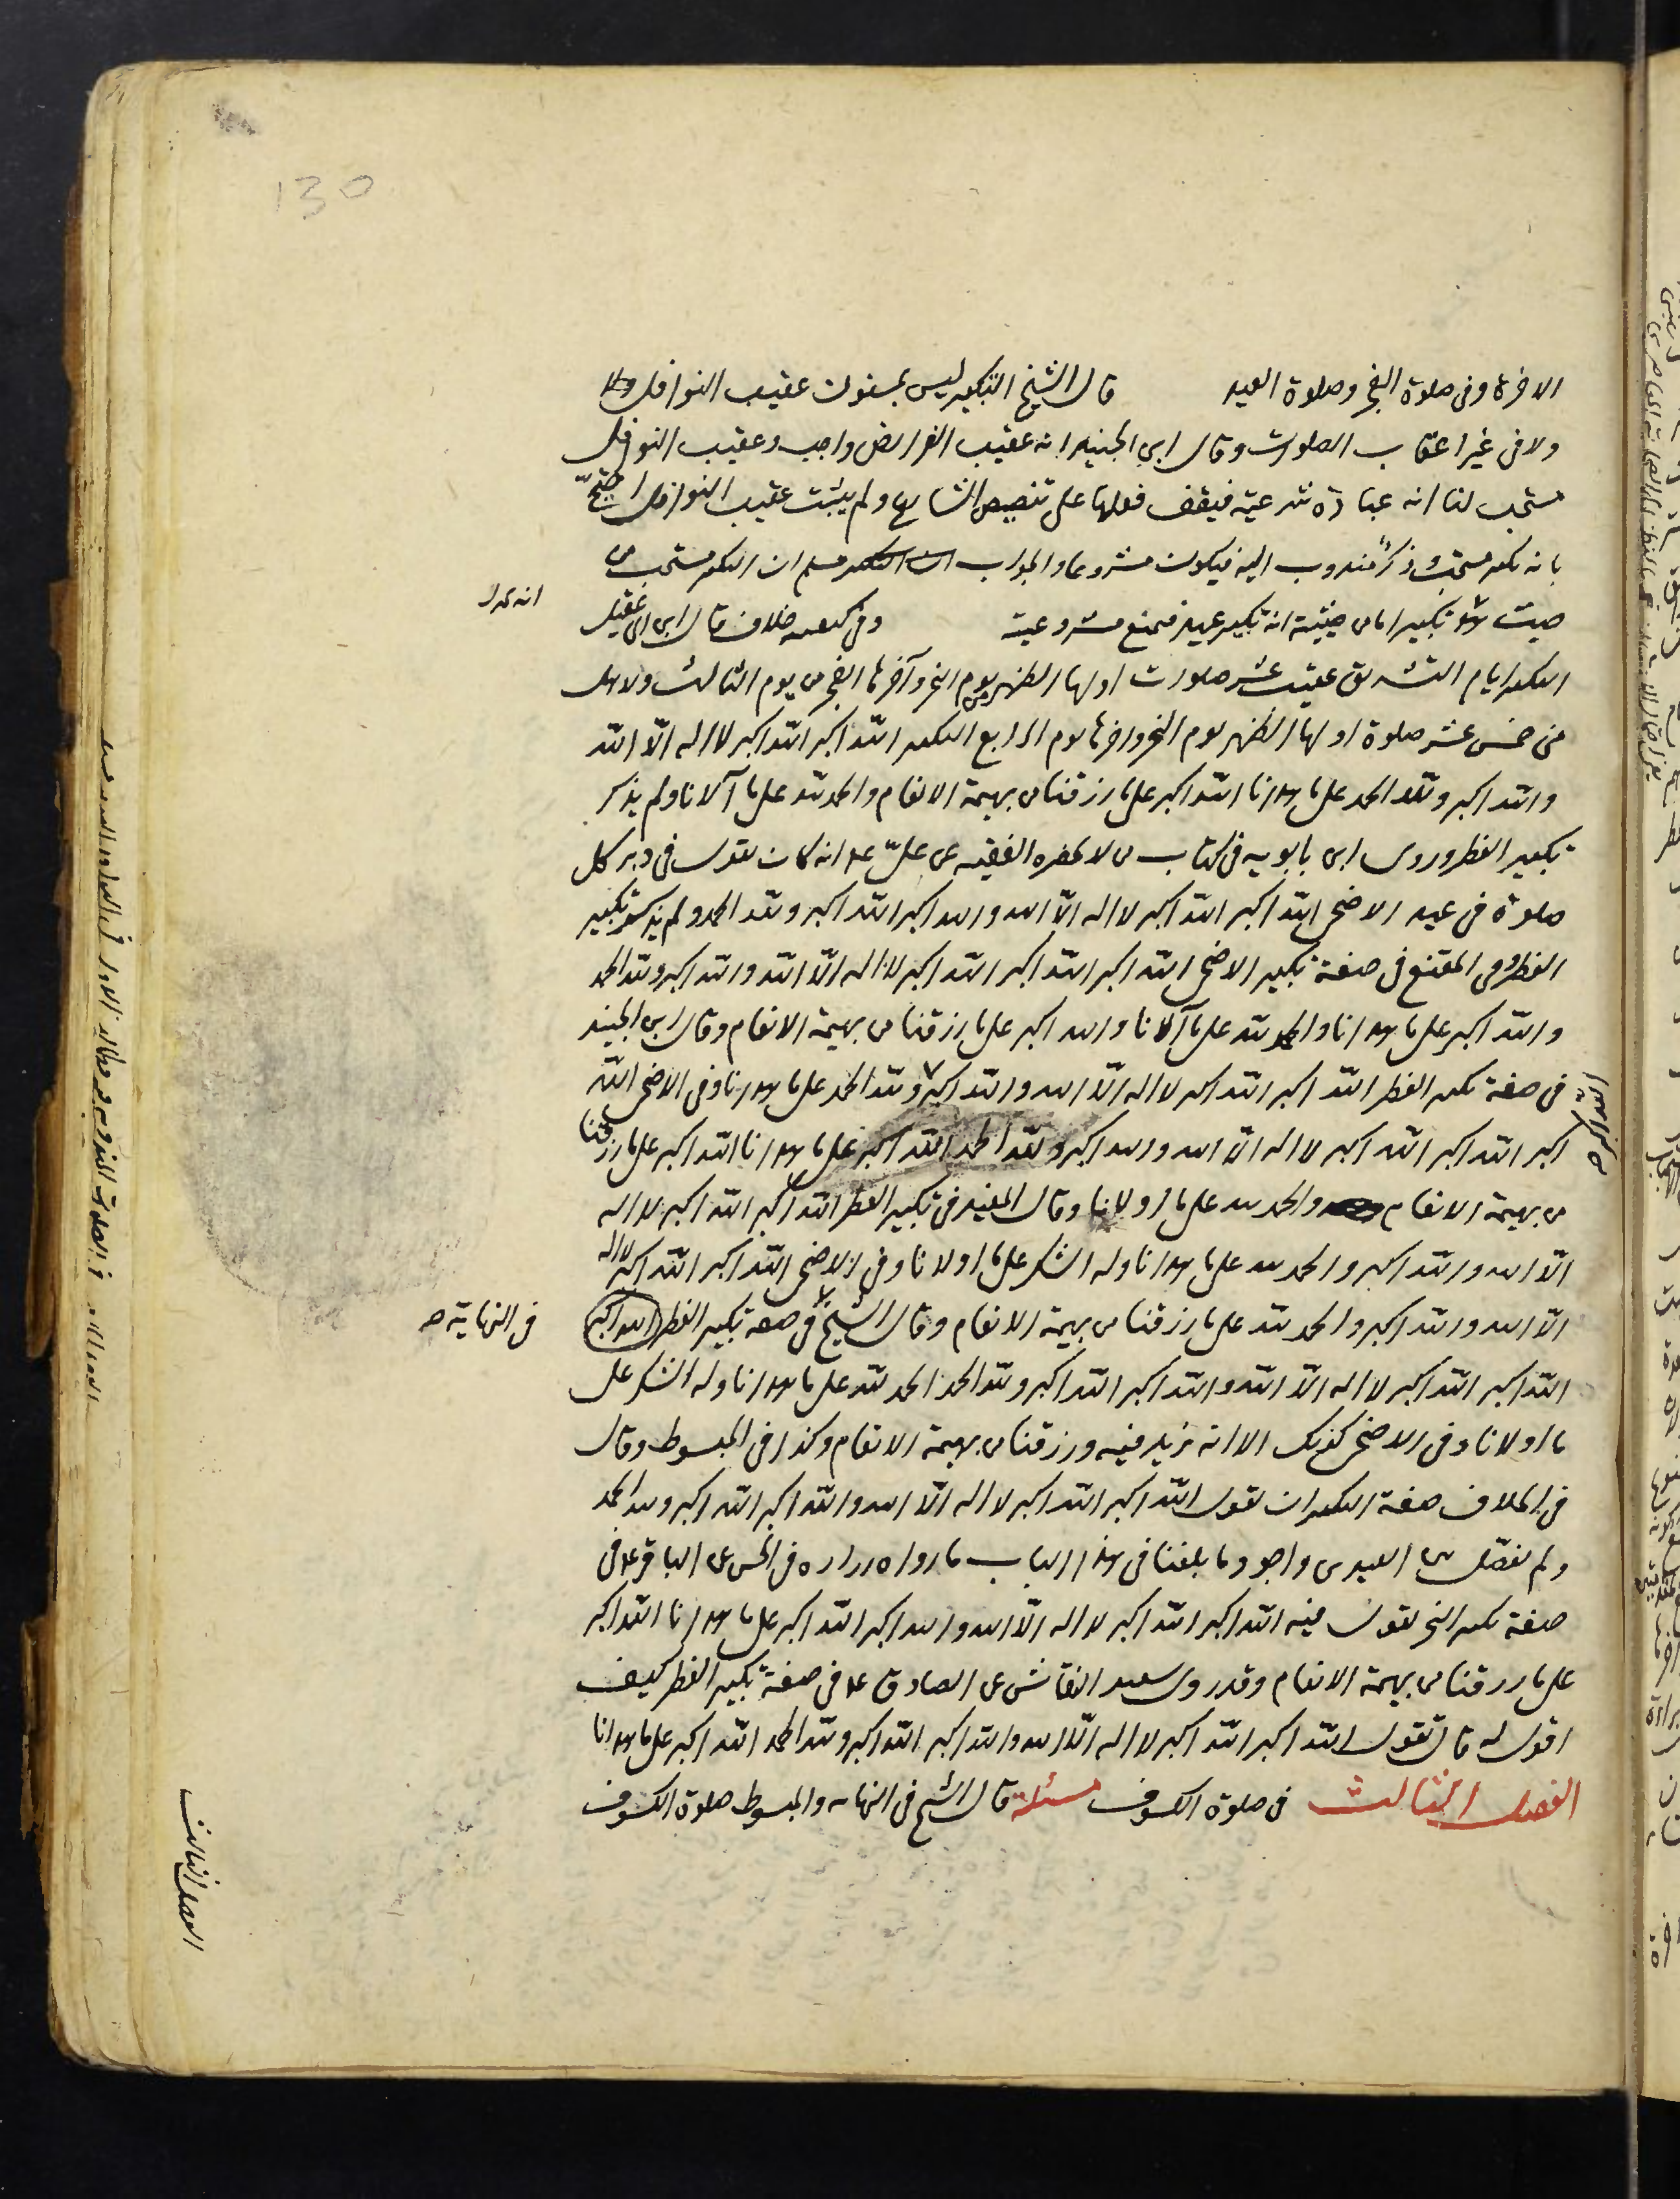 130
الاخرة وفى صلوة الفجر وصلاة العيد قال الشيخ التكبير ليس بمسنون عقيب النوافل ولا
ولا فى غير اعقاب الصلوات وقال ابن الجنيد انه عقيب الفرائض واجب وعقيب النوافل
مستحب لنا انه عبادة شرعية فيقف فعلها على تنصيص الشارع ولم يثبت عقيب النوافل احتج
بانه تكبير مستحب وذكر مندوب اليه فيكون مشروعا والجواب مسلم ان التكبير مستحب من
حيث هو تكبير اما من حيثية انه تكبير عيد فنمنع مشروعيته وفى كيفيته خلاف قال ابن ابى عقيل
التكبير ايام التشريق عقيب عشر صلوات اولها الظهر يوم النحر وآخرها الفجر من يوم الثالث ولاهل
منى خمس عشر صلوة اولها الظهر يوم النحر واخرها يوم الرابع التكبير الله اكبر الله اكبر لا اله الّا الله
والله اكبر ولله الحمد على ما هدانا الله اكبر على ما رزقنا من بهيمة الانعام والحمد لله على ما آلانا ولم يذكر
تكبير الفطر وروى ابن بابويه فى كتاب من لا يحضره الفقيه عن علىّ ع انه كان يقول فى دبر كل
صلوة فى عيد الاضحى الله اكبر الله اكبر لا اله الّا الله والله اكبر الله اكبر ولله الحمد ولم يذكر تكبير
الفطر وفى المقنع فى صفة تكبير الاضحى الله اكبر الله اكبر الله اكبر لا اله الّا الله والله اكبر ولله الحمد
والله اكبر على ما هدانا والحمد لله على ما آلانا والله اكبر على ما رزقنا من بهيمة الانعام وقال ابن الجنيد
فى صفة تكبير الفطر الله اكبر الله اكبر لا اله الّا الله والله اكبر ولله الحمد على ما هدانا وفى الاضحى الله
الله اكبر صح
اكبر الله اكبر الله اكبر لا اله الا الله والله اكبر ولله الحمد الله اكبر على ما هدانا الله اكبر على ما رزقنا
من بهيمة الانعام والحمد لله على ما اولانا وقال المفيد فى تكبير الفطر الله اكبر الله اكبر لا اله
الّا الله والله اكبر والحمد لله على ما هدانا وله الشكر على ما اولانا وفى الاضحى الله اكبر الله اكبر لا اله
الّا الله والله اكبر والحمد لله على ما رزقنا من بهيمة الانعام وقال الشيخ فى صفة تكبير الفطر الله اكبر
فى النهاية صح
الله اكبر الله اكبر لا اله الّا الله والله اكبر الله اكبر ولله الحمد الحمد لله على ما هدانا وله الشكر على
ما اولانا وفى الاضحى كذلك الا انه يزيد فيه ورزقنا من بهيمة الانعام وكذا فى المبسوط وقال
فى الخلاف صفة التكبير ان يقول الله اكبر الله اكبر لا اله الّا الله والله اكبر الله اكبر ولله الحمد
ولم يفصّل بين العيدين واجود ما بلغنا فى هذا الباب ما رواه زراره فى الحسن عن الباقر ع فى
صفة تكبير النحر تقول فيه الله اكبر الله اكبر لا اله الّا الله والله اكبر الله اكبر على ما هدانا الله اكبر
على ما رزقنا من بهيمة الانعام وقد روى سعيد النقاش عن الصادق ع فى صفة تكبير الفطر كيف
اقول له قال تقول الله اكبر الله اكبر لا اله الّا الله والله اكبر الله اكبر ولله الحمد الله اكبر على ما هدانا
الفصل الثالث فى صلوة الكسوف مسئلة قال الشيخ فى النهاية والمبسوط صلوة الكسوف
الفصل الثالث